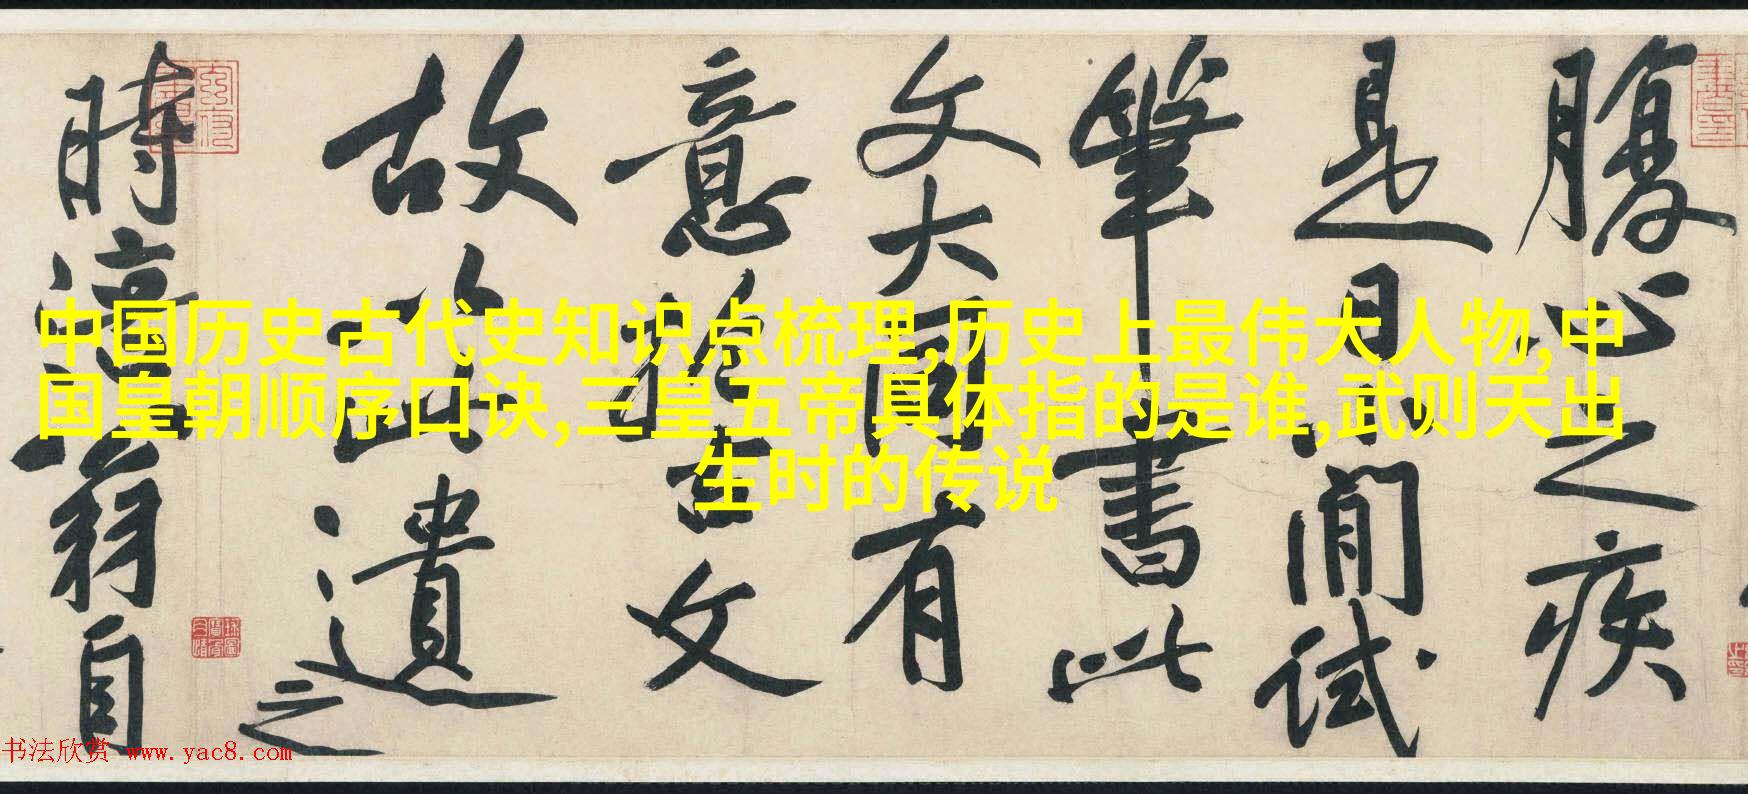 中国历史古代史知识点梳理,历史上最伟大人物,中
国皇朝顺序口诀,三皇五帝具体指的是谁,武则天出
生时的传说
腹心之疾
是日闲试
筆書此
文大同有
意於古文
故以遺之
時涪翁自
书法欣赏 www.yac8.com